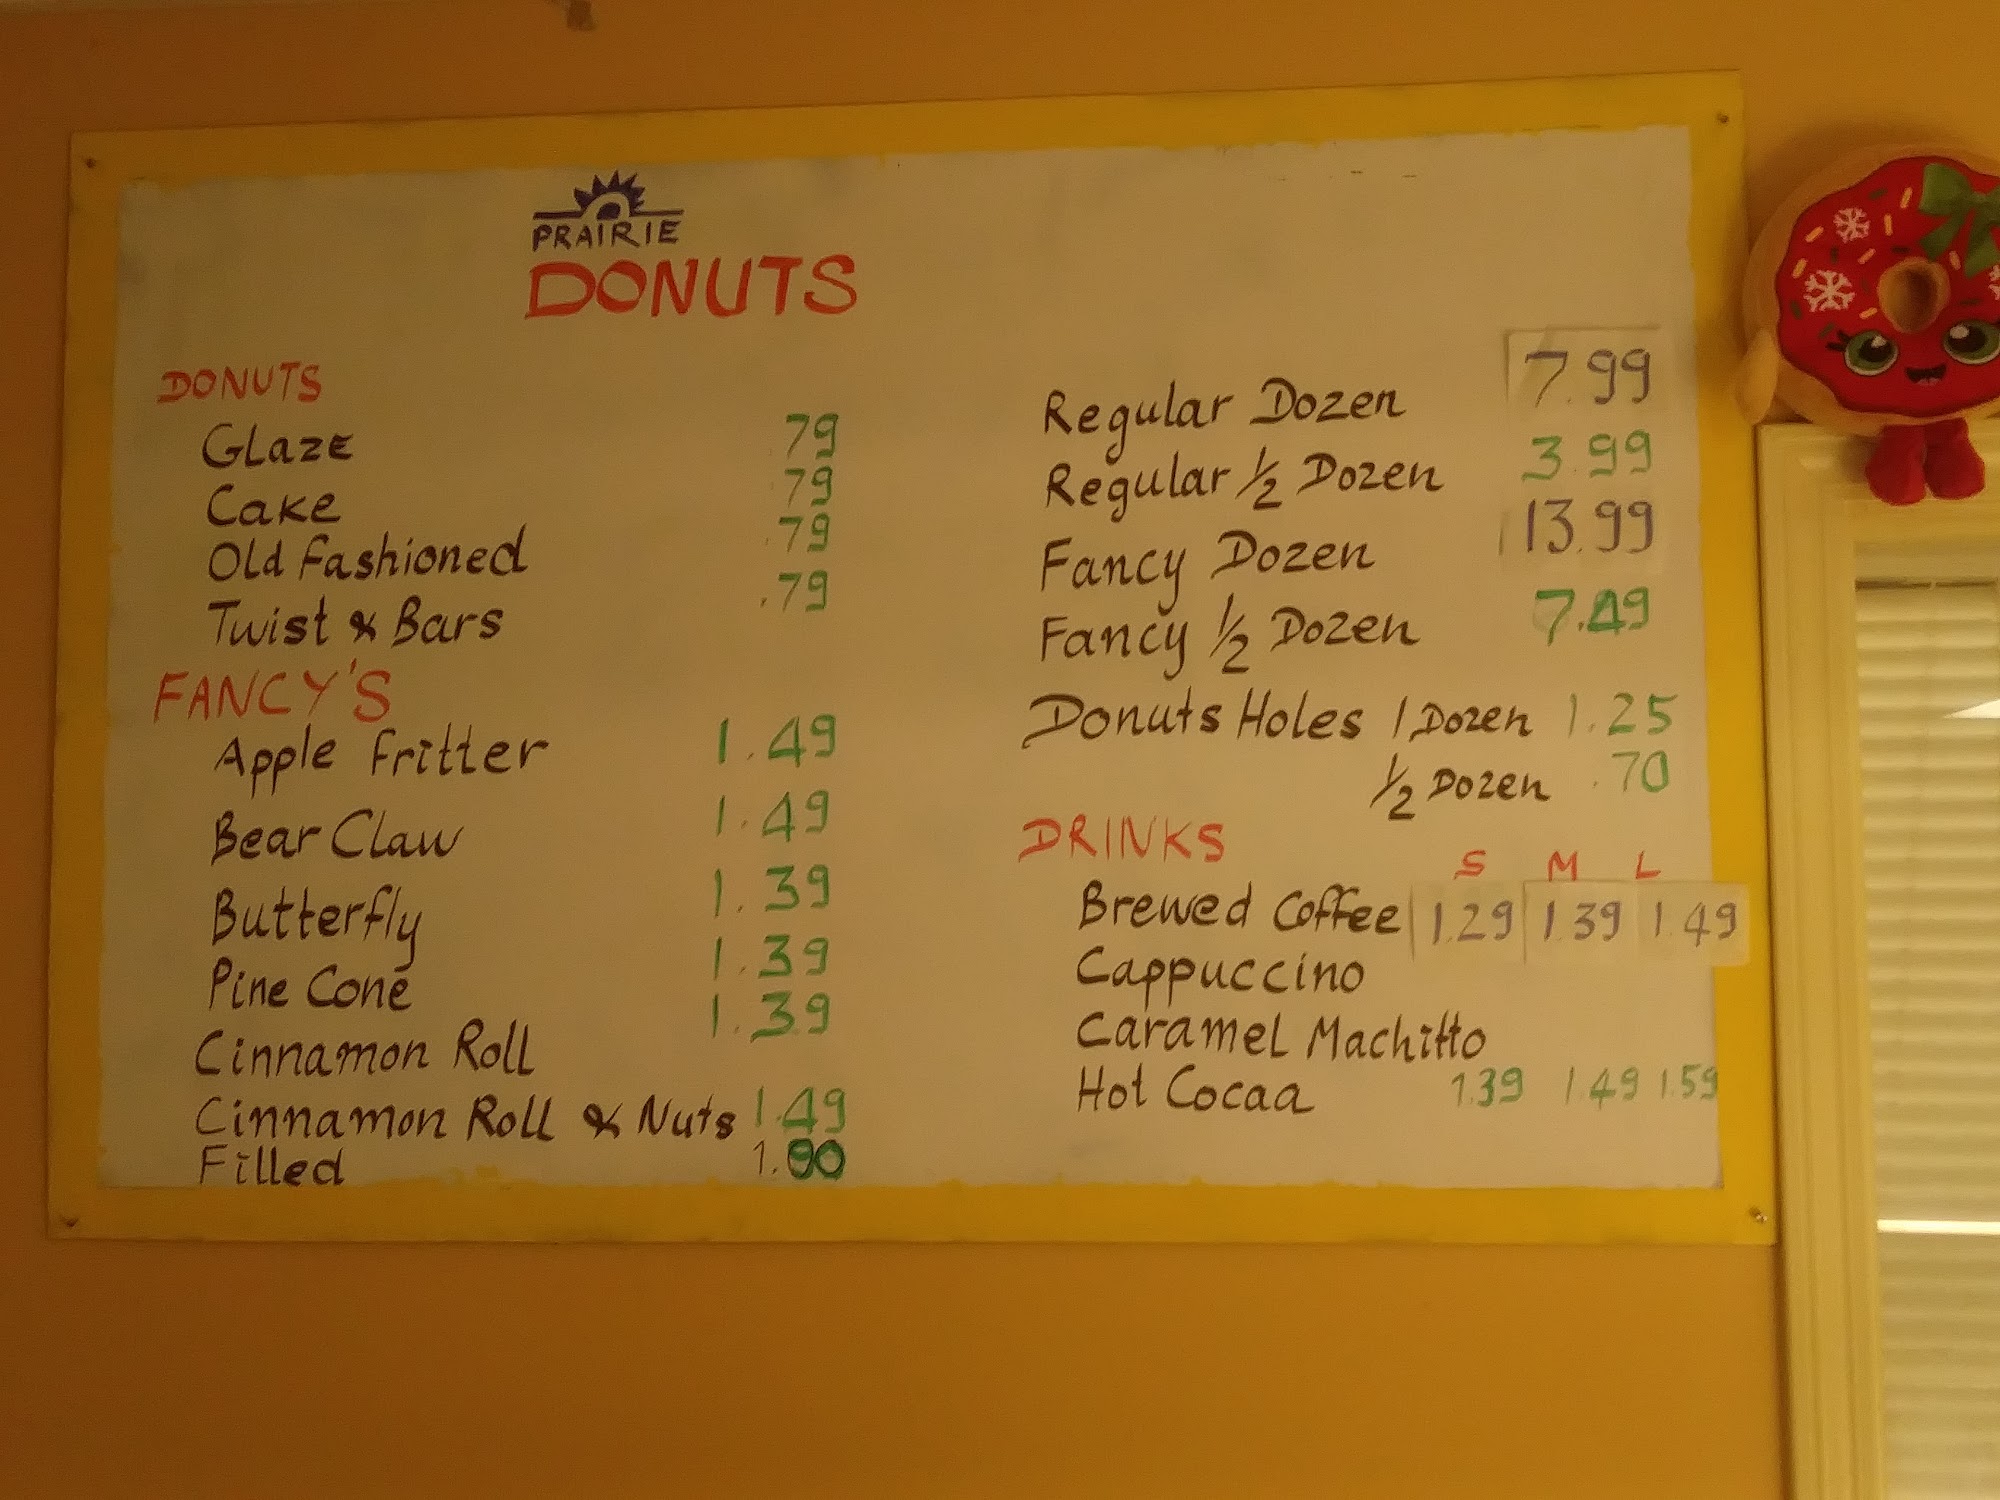 PRAIRIE
DONUTS
DONUTS
Glaze .79
Cake .79
Old Fashioned .79
Twist & Bars .79
FANCY'S
Apple Fritter 1.49
Bear Claw 1.49
Butterfly 1.39
Pine Cone 1.39
Cinnamon Roll 1.39
Cinnamon Roll & Nuts 1.49
Filled
Regular Dozen 7.99
Regular 1/2 Dozen 3.99
Fancy Dozen 13.99
Fancy 1/2 Dozen 7.49
Donuts Holes 1 Dozen 1.25
1/2 Dozen .70
DRINKS S M L
Brewed Coffee 1.29 1.39 1.49
Cappuccino
Caramel Machitto
Hot Cocaa 1.39 1.49 1.59